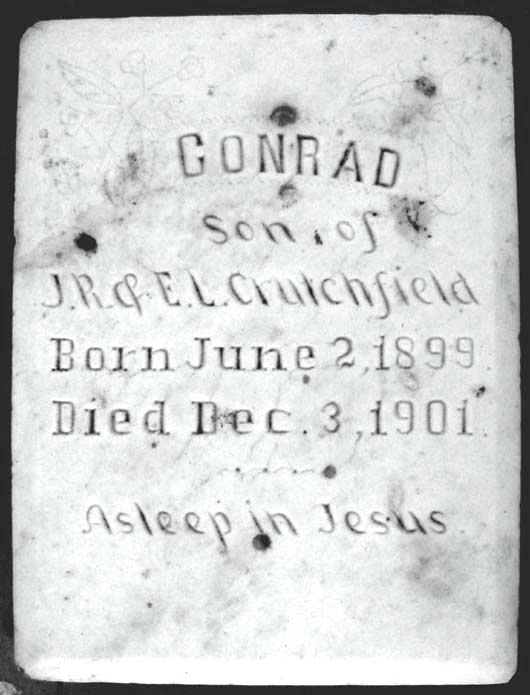 CONRAD
Son of
J.R. & E.L. Crutchfield
Born June 2, 1899.
Died Dec. 3, 1901.
Asleep in Jesus.